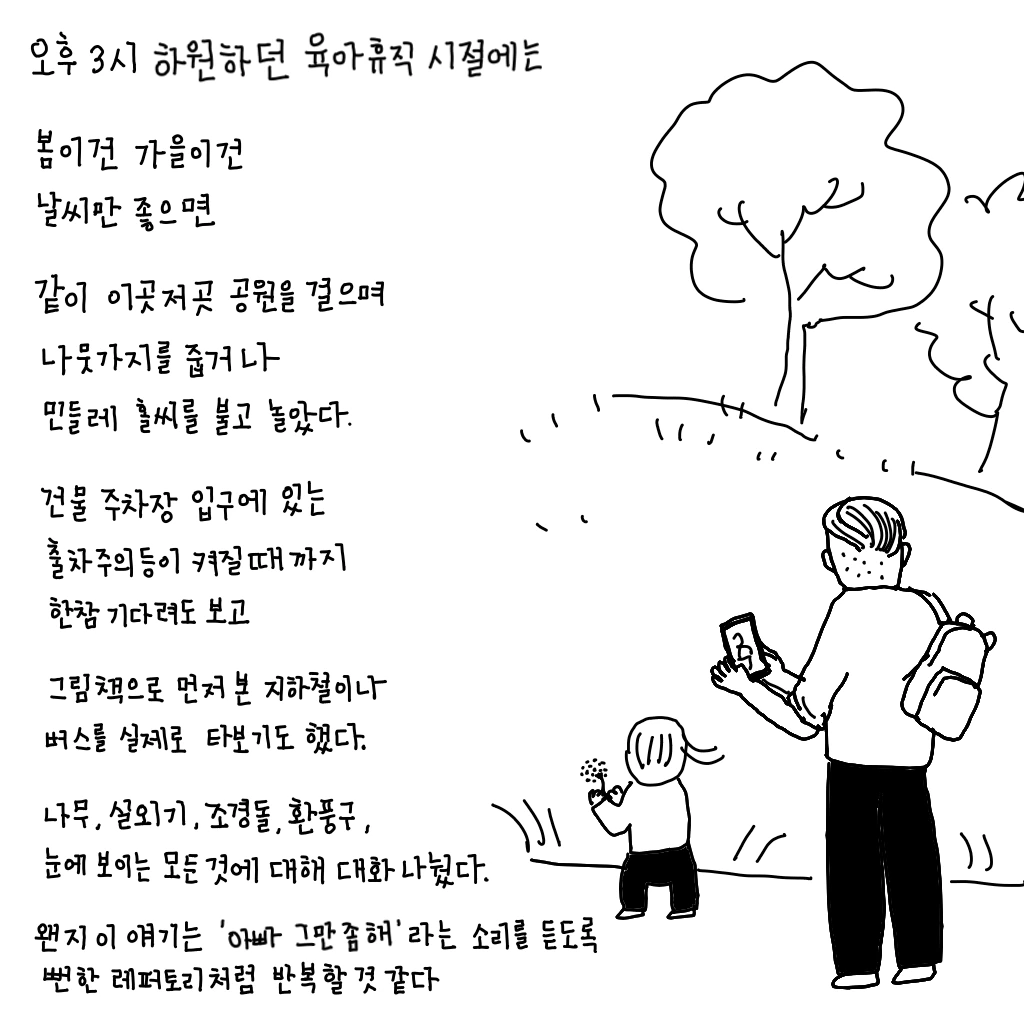 오후 3시 하원하던 육아휴직 시절에는
봄이건 가을이건
날씨만 좋으면
같이 이곳저곳 공원을 걸으며
나뭇가지를 줍거나
민들레 홀씨를 불고 놀았다.
건물 주차장 입구에 있는
출차주의등이 켜질때까지
한참 기다려도 보고
그림책으로 먼저 본 지하철이나
버스를 실제로 타보기도 했다.
나무, 실외기, 조경돌, 환풍구,
눈에 보이는 모든것에 대해 대화 나눴다.
왠지 이 얘기는 '아빠 그만좀해'라는 소리를 듣도록
뻔한 레퍼토리처럼 반복할것 같다